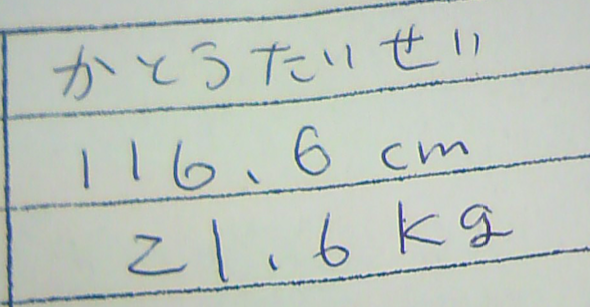 かとうたいせい
116.6cm
21.6kg